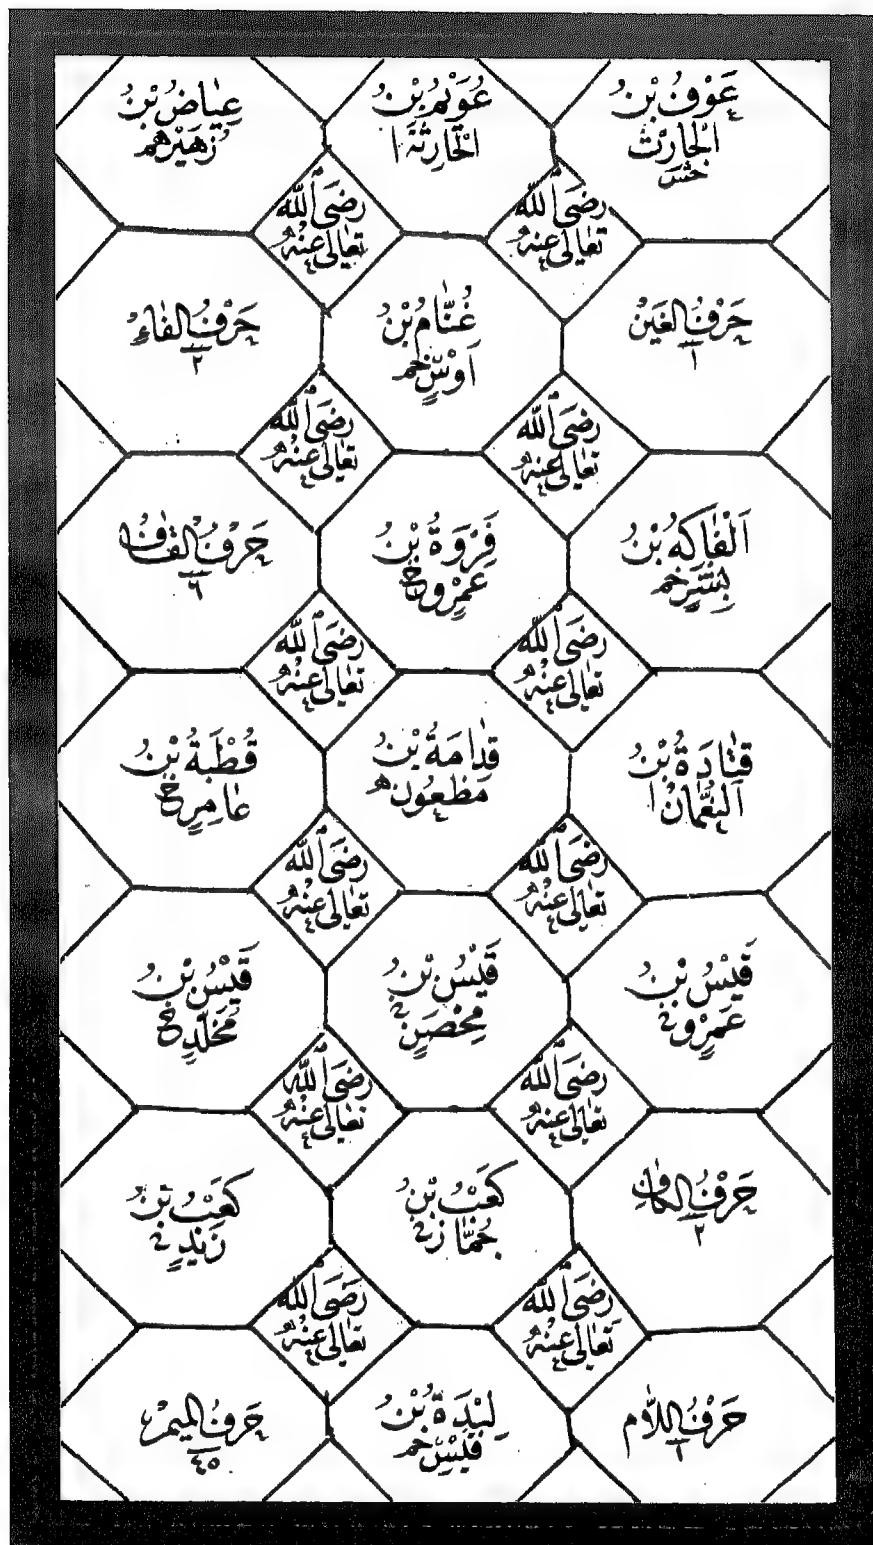 عَوْفُ بْنُ
الْحَارِثْ
خشس
عُوَيْمُ بْنُ
الْحَارِثَةْ ا
عِيَاضُ بْنُ
زُهَيْرٍ هم
رَضِىَ اللّٰه
تَعَالٰى عَنْهُ
رَضِىَ اللّٰه
تَعَالٰى عَنْهُ
حَرْفُ الْغَيْنْ
١
غُنَّامُ بْنُ
اَوْسٍ خم
حَرْفُ الْفَاءْ
٢
رَضِىَ اللّٰه
تَعَالٰى عَنْهُ
رَضِىَ اللّٰه
تَعَالٰى عَنْهُ
اَلْفَاكَهُ بْنُ
بِشْرٍ خم
فَرْوَةُ بْنُ
عَمْرٍو خ
حَرْفُ الْقَافْ
٦
رَضِىَ اللّٰه
تَعَالٰى عَنْهُ
رَضِىَ اللّٰه
تَعَالٰى عَنْهُ
قَتَادَةُ بْنُ
النُّعْمَانْ ا
قُدَامَةُ بْنُ
مَظْعُون ه
قُطْبَةُ بْنُ
عَامِرٍ خ
رَضِىَ اللّٰه
تَعَالٰى عَنْهُ
رَضِىَ اللّٰه
تَعَالٰى عَنْهُ
قَيْسُ بْنُ
عَمْرٍو
قَيْسُ بْنُ
مِحْصَنٍ
قَيْسُ بْنُ
مُخَلَّدٍ خ
رَضِىَ اللّٰه
تَعَالٰى عَنْهُ
رَضِىَ اللّٰه
تَعَالٰى عَنْهُ
حَرْفُ الْكَافْ
٢
كَعْبُ بْنُ
جُمَّازٍ
كَعْبُ بْنُ
زَيْدٍ
رَضِىَ اللّٰه
تَعَالٰى عَنْهُ
رَضِىَ اللّٰه
تَعَالٰى عَنْهُ
حَرْفُ اللَّامْ
١
لِبْدَةُ بْنُ
قَيْسٍ خم
حَرْفُ الْمِيمْ
٤٥